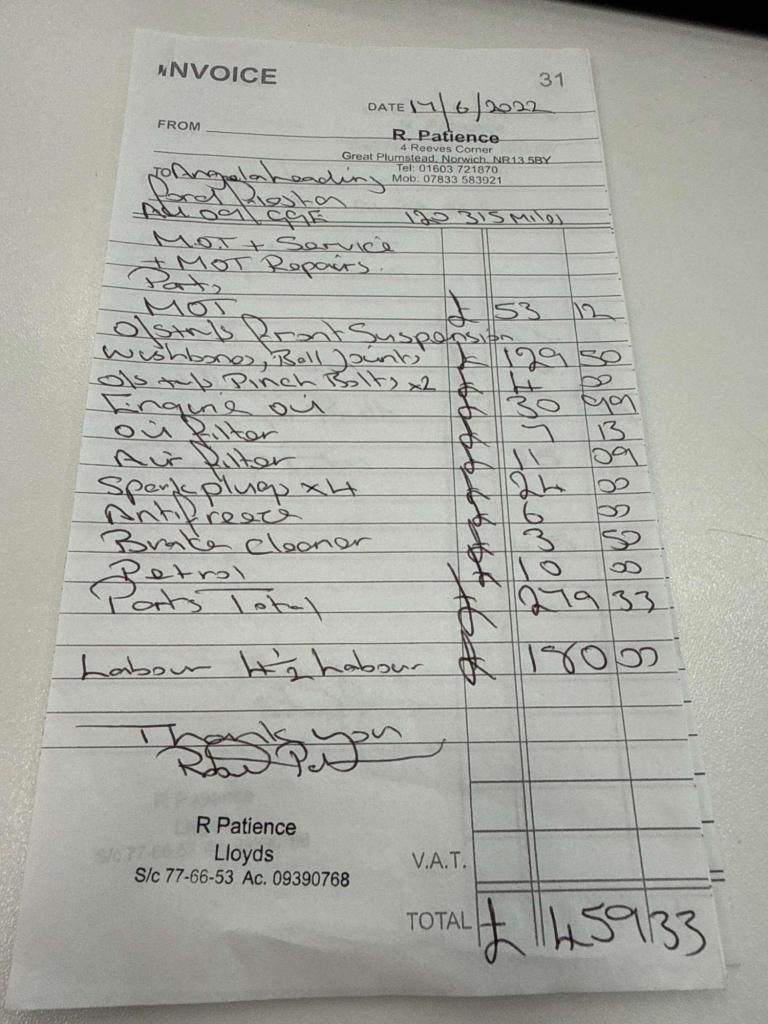 INVOICE
31
DATE 17/6/2022
FROM
R. Patience
4 Reeves Corner
Great Plumstead, Norwich, NR13 5BY
Tel: 01603 721870
Mob: 07833 583921
TO Angela heading
Ford Fiesta
09 120 315 Miles
M.O.T + Service
+ MOT Repairs.
Parts
MOT £ 53 12
O/S + N/S Front Suspension
Wishbones, Ball Joints £ 129 50
O/S + N/S Pinch Bolts x2 £ 4 00
Engine oil £ 30 99
Oil filter £ 7 13
Air filter £ 11 09
Spark plugs x4 £ 24 00
Antifreece £ 6 00
Brake cleaner £ 3 50
Petrol £ 10 00
Parts Total £ 279 33
Labour 4 1/2 Labour £ 180 00
Thank you
R Patience
Lloyds
S/c 77-66-53 Ac. 09390768
V.A.T.
TOTAL £ 459 33